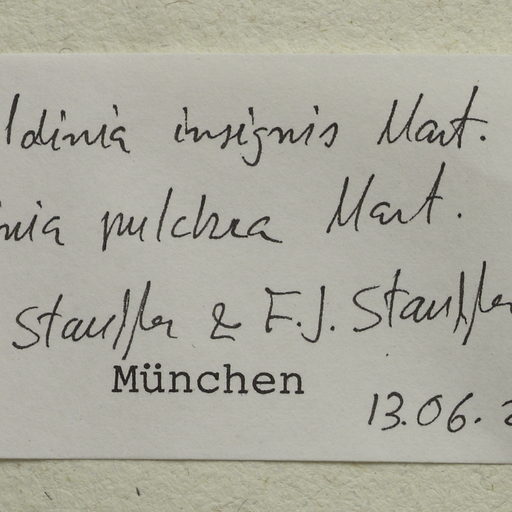 ldinia insignis Mart.
inia pulchra Mart.
Stauffer & F.J. Stauffer
München
13.06.2